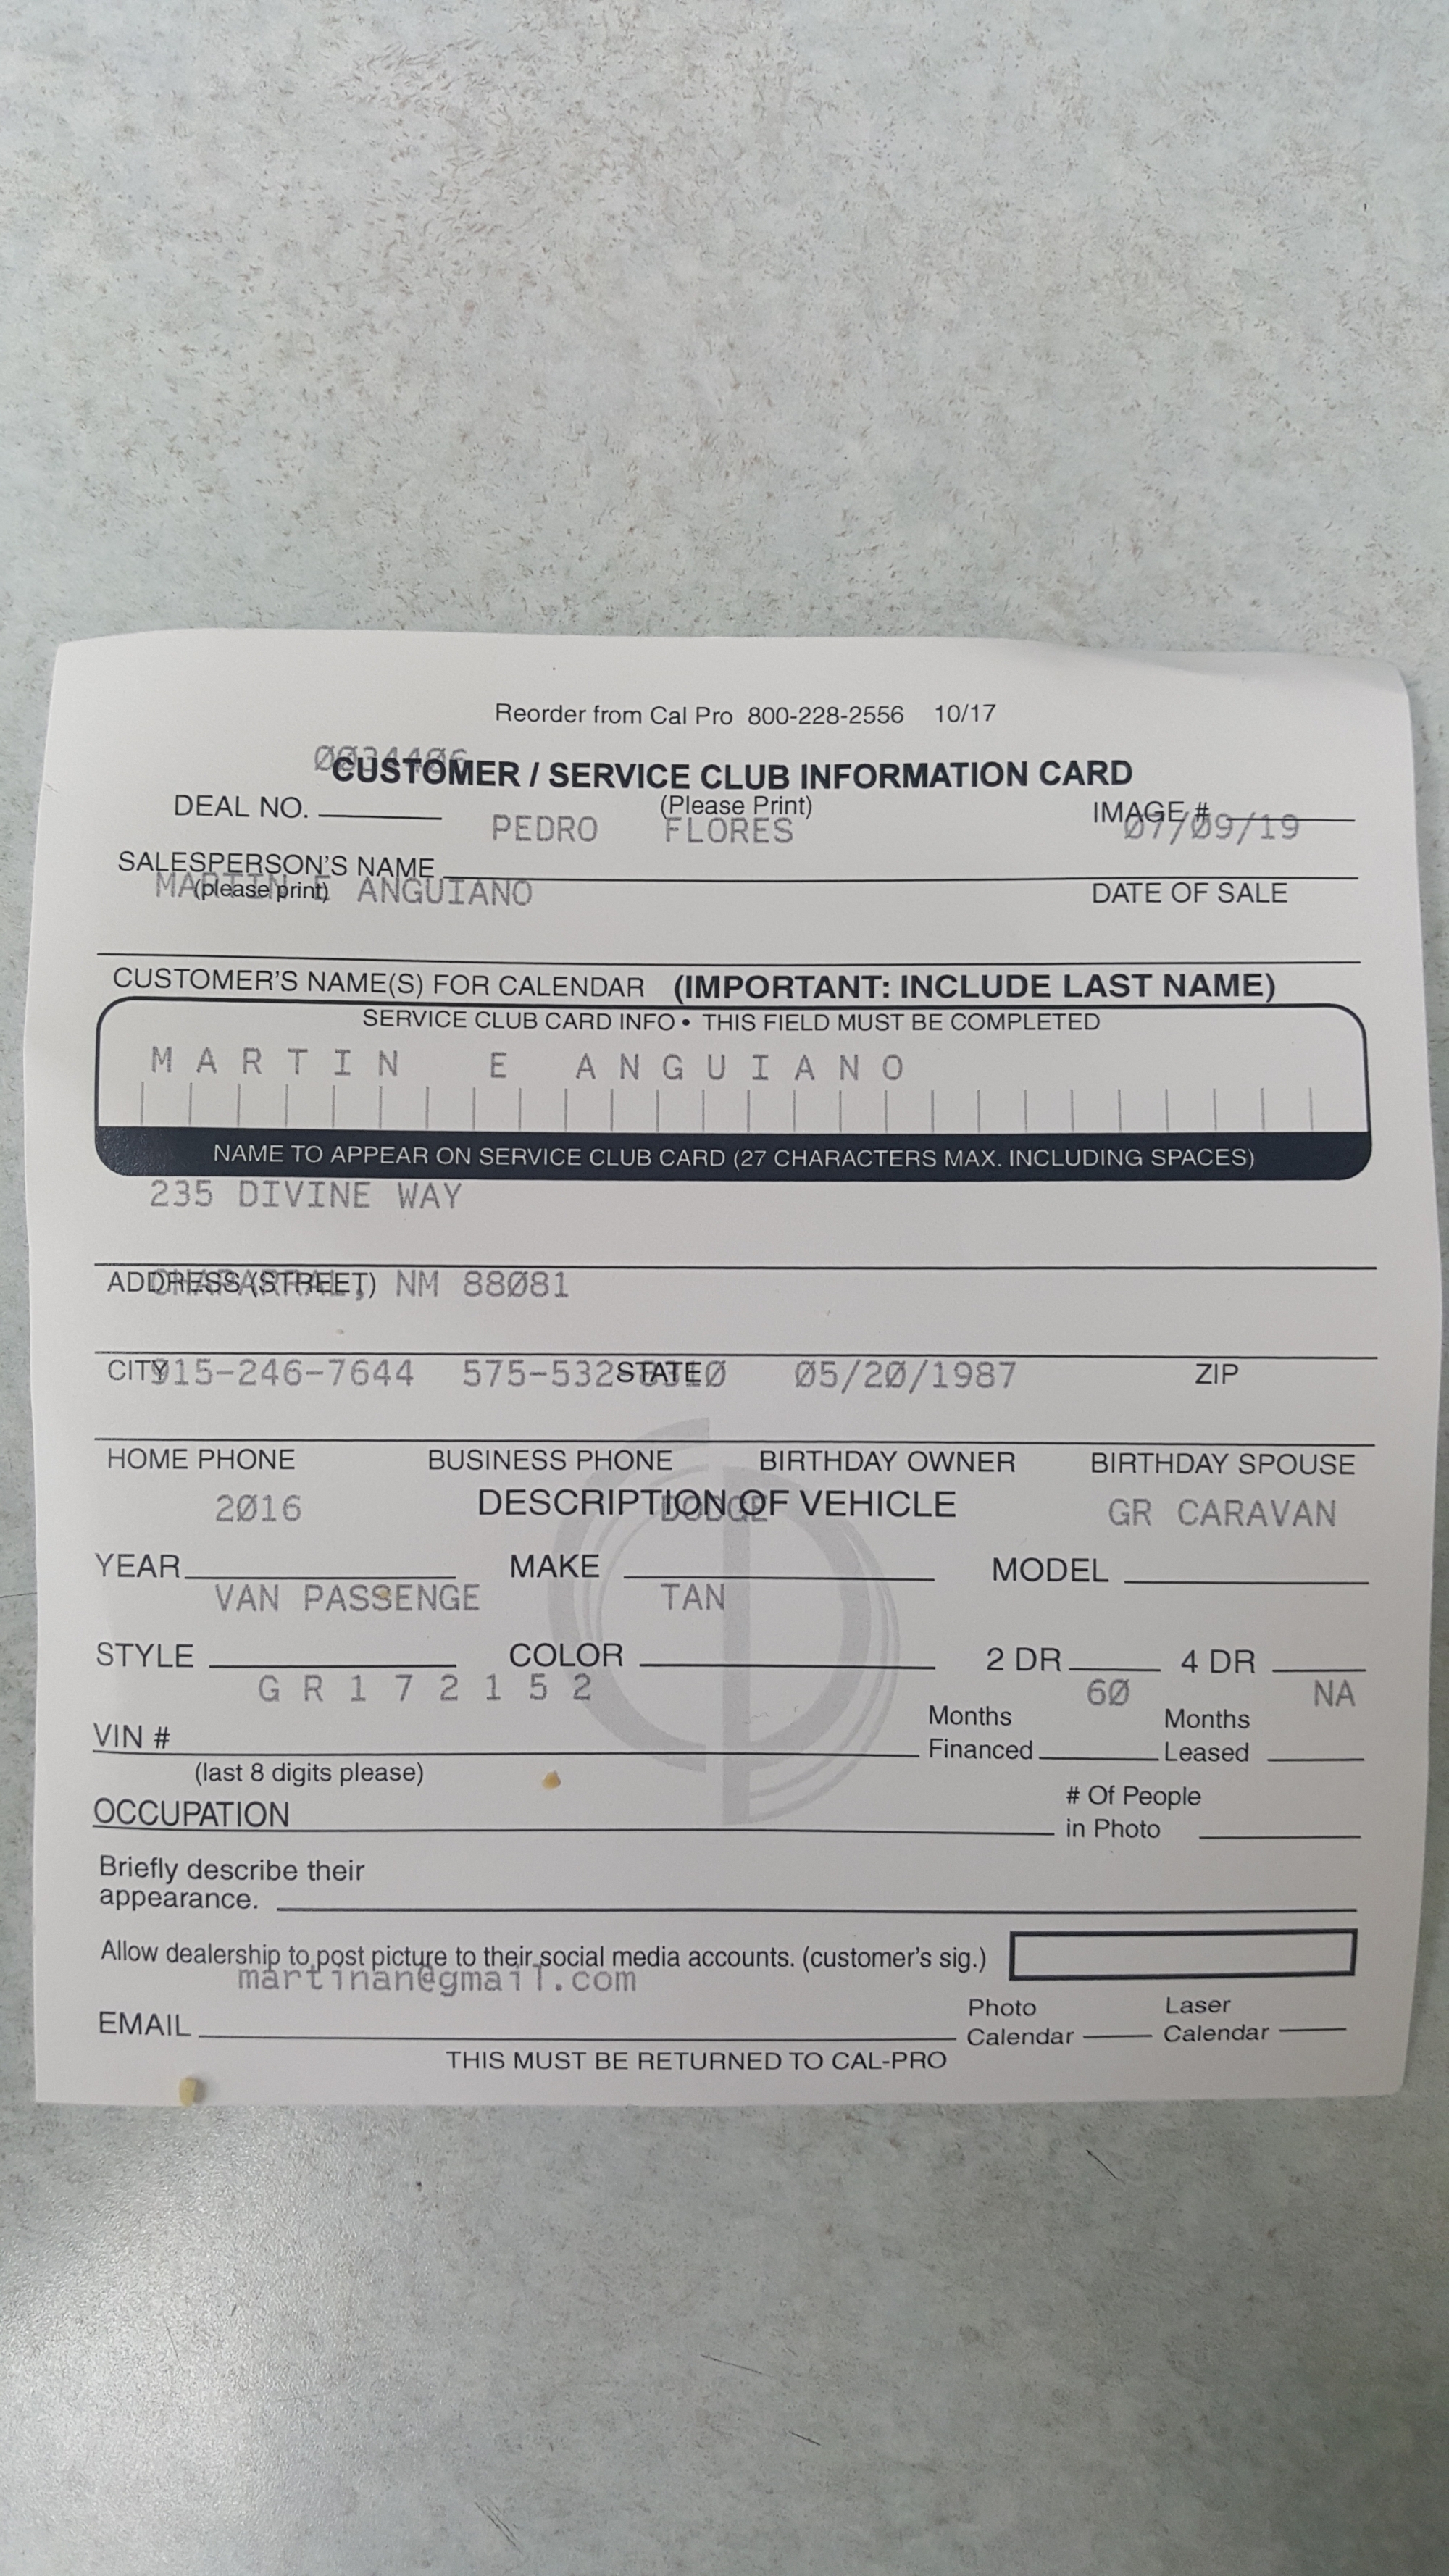 Reorder from Cal Pro 800-228-2556 10/17
0034406
CUSTOMER / SERVICE CLUB INFORMATION CARD
DEAL NO. (Please Print) IMAGE #
PEDRO FLORES 07/09/19
SALESPERSON'S NAME
(please print) DATE OF SALE
MARTIN E ANGUIANO
CUSTOMER'S NAME(S) FOR CALENDAR (IMPORTANT: INCLUDE LAST NAME)
SERVICE CLUB CARD INFO • THIS FIELD MUST BE COMPLETED
MARTIN E ANGUIANO
NAME TO APPEAR ON SERVICE CLUB CARD (27 CHARACTERS MAX. INCLUDING SPACES)
235 DIVINE WAY
ADDRESS (STREET)
CHAPARRAL, NM 88081
CITY STATE ZIP
915-246-7644 575-532-8310 05/20/1987
HOME PHONE BUSINESS PHONE BIRTHDAY OWNER BIRTHDAY SPOUSE
DESCRIPTION OF VEHICLE
2016 DODGE GR CARAVAN
YEAR MAKE MODEL
VAN PASSENGE TAN
STYLE COLOR 2 DR 4 DR
GR172152 60 NA
VIN # Months Financed Months Leased
(last 8 digits please)
OCCUPATION # Of People in Photo
Briefly describe their
appearance.
Allow dealership to post picture to their social media accounts. (customer's sig.)
martinan@gmail.com
EMAIL Photo Calendar Laser Calendar
THIS MUST BE RETURNED TO CAL-PRO